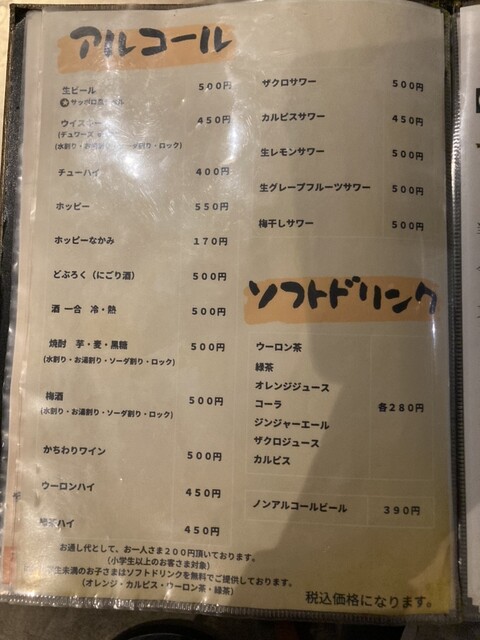 アルコール
生ビール 500円
サッポロ
ウイスキー 450円
(デュワーズ
(水割り・お湯割り・ソーダ割り・ロック)
チューハイ 400円
ホッピー 550円
ホッピーなかみ 170円
どぶろく(にごり酒) 500円
酒 一合 冷・熱 500円
焼酎 芋・麦・黒糖 500円
(水割り・お湯割り・ソーダ割り・ロック)
梅酒 500円
(水割り・お湯割り・ソーダ割り・ロック)
かちわりワイン 500円
ウーロンハイ 450円
茶ハイ 450円
ザクロサワー 500円
カルピスサワー 450円
生レモンサワー 500円
生グレープフルーツサワー 500円
梅干しサワー 500円
ソフトドリンク
ウーロン茶
緑茶
オレンジジュース
コーラ 各280円
ジンジャーエール
ザクロジュース
カルピス
ノンアルコールビール 390円
お通し代として、お一人さま200円頂いております。
(小学生以上のお客さま対象)
生未満のお子さまはソフトドリンクを無料でご提供しております。
(オレンジ・カルピス・ウーロン茶・緑茶)
税込価格になります。